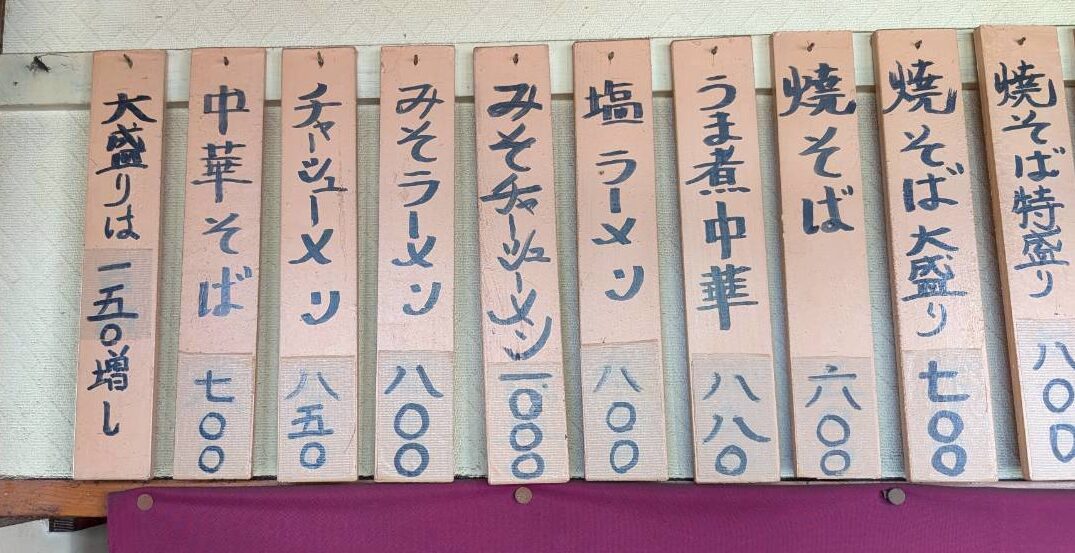 焼そば特盛り 八〇〇
焼そば大盛り 七〇〇
焼そば 六〇〇
うま煮中華 八八〇
塩ラーメン 八〇〇
みそチャーシューメン 一〇〇〇
みそラーメン 八〇〇
チャーシューメン 八五〇
中華そば 七〇〇
大盛りは 一五〇増し